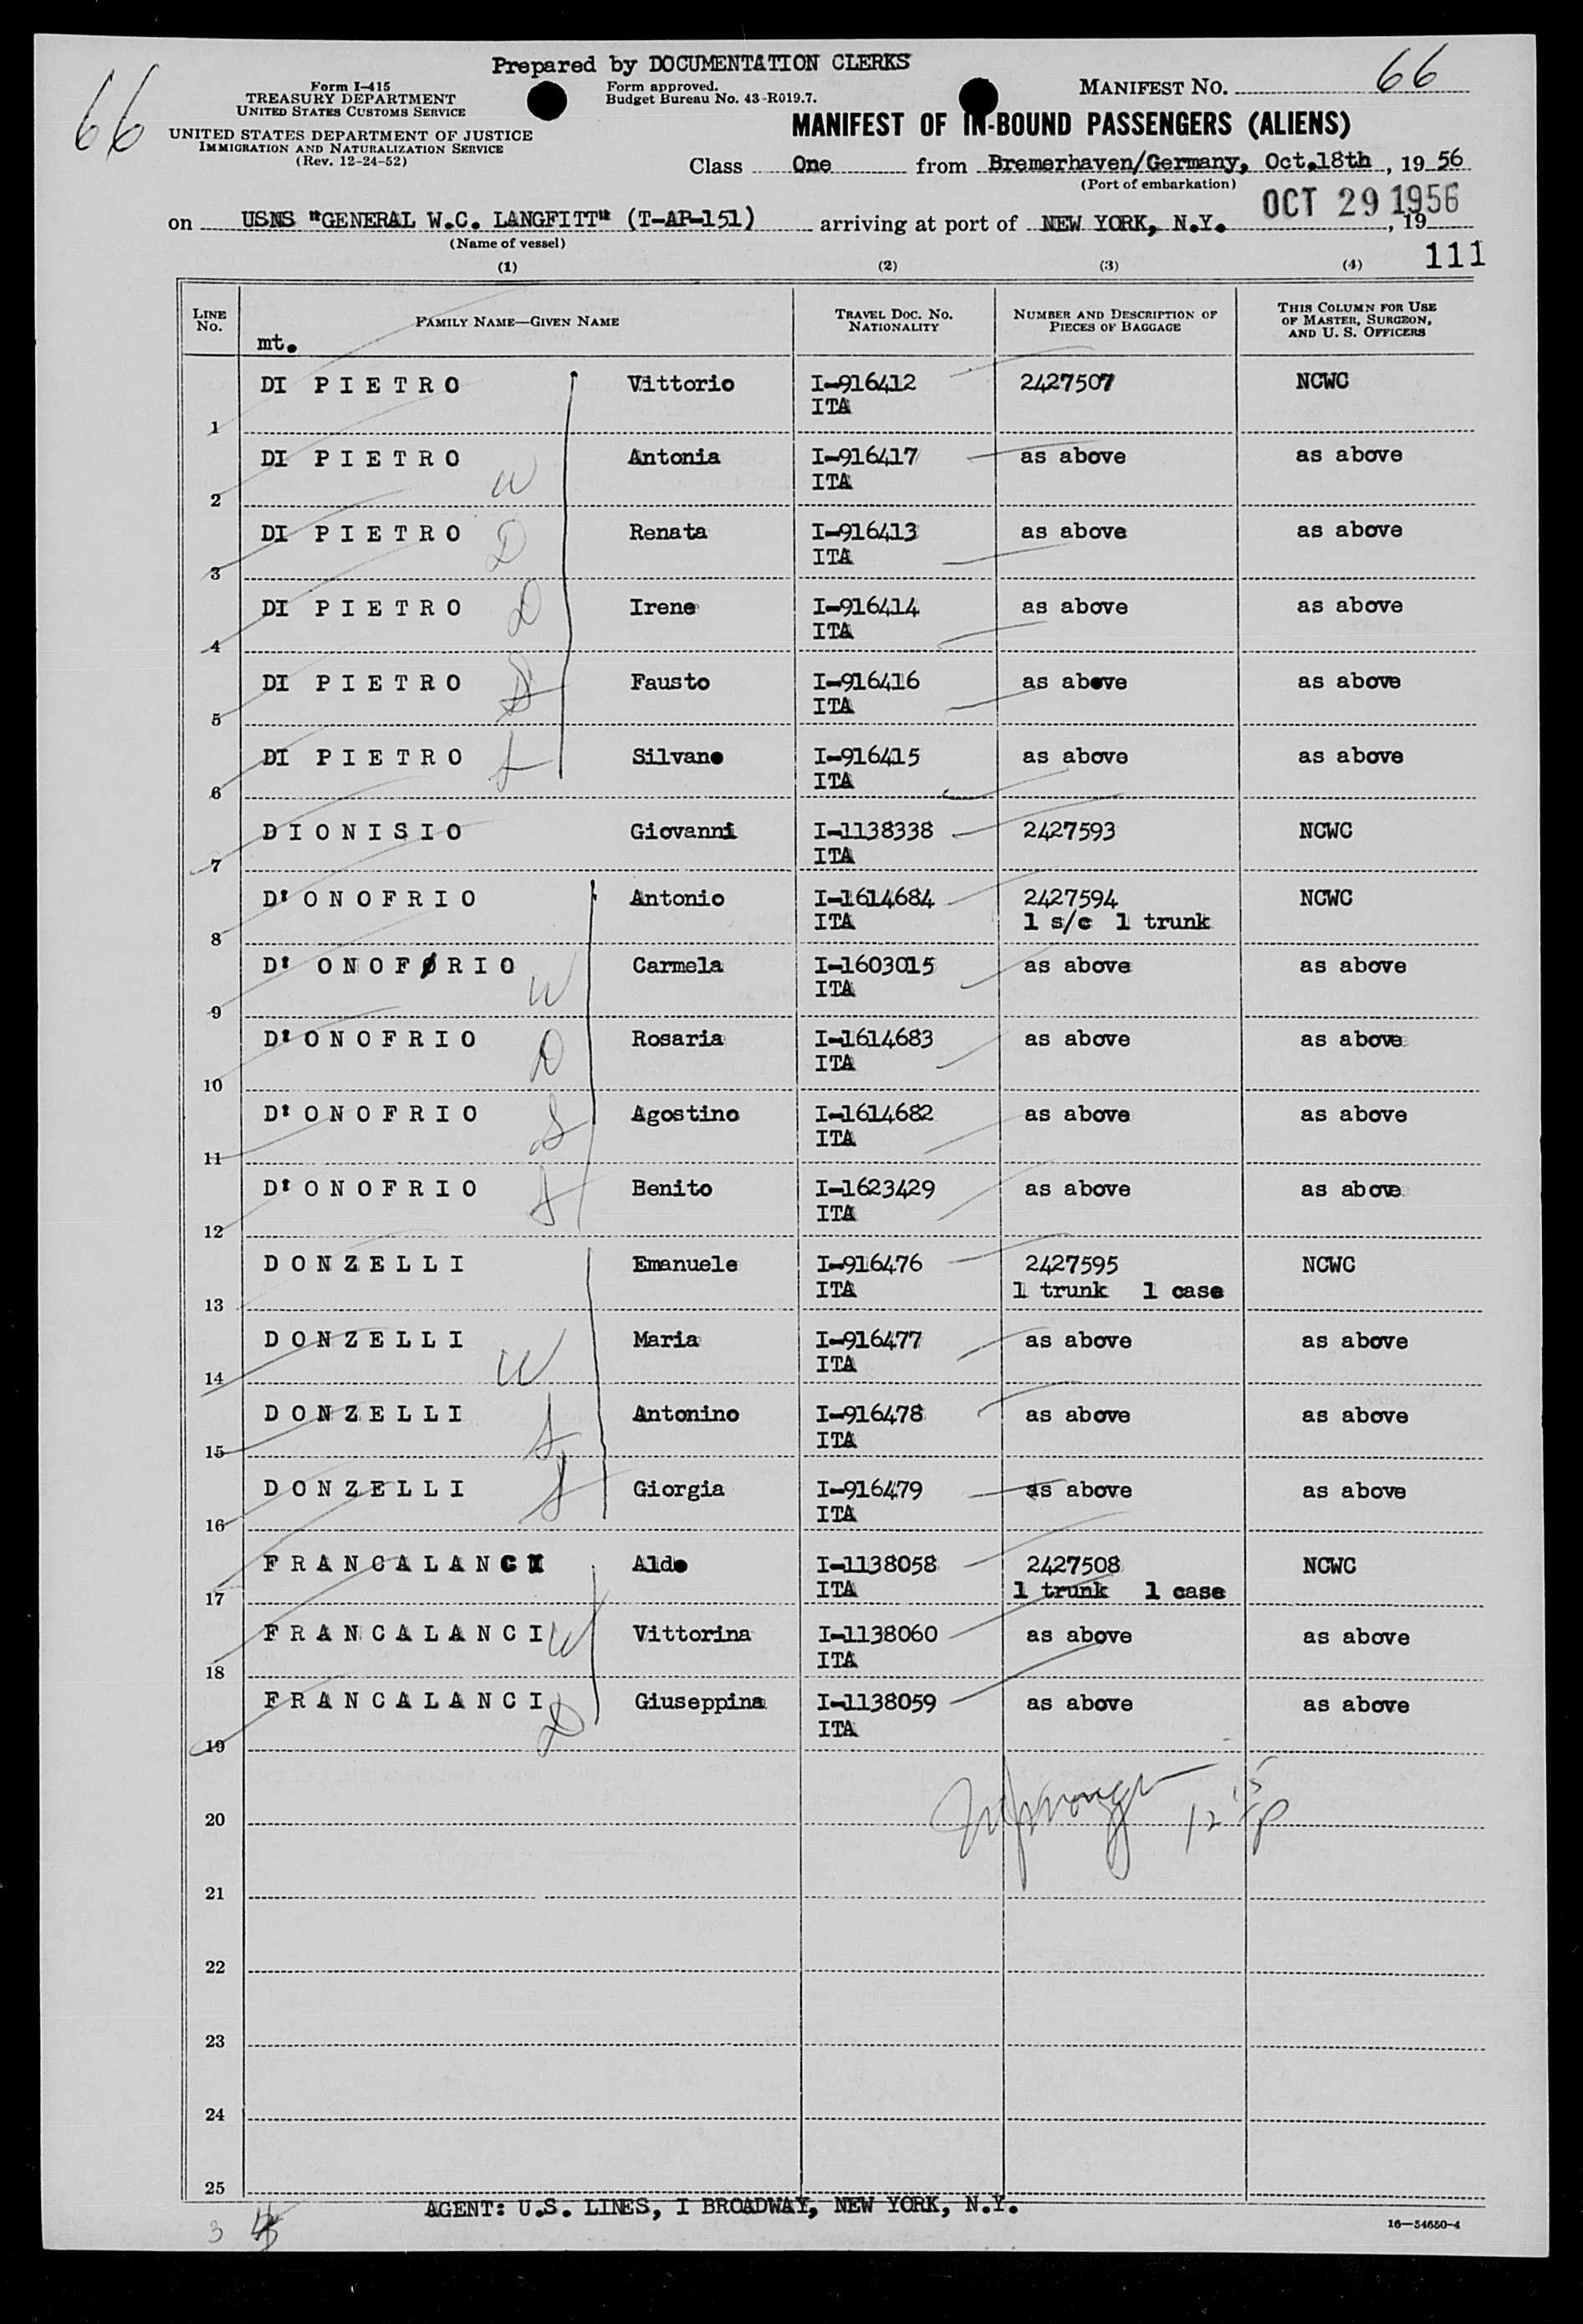 Prepared by DOCUMENTATION CLERKS
66
66
Form I-415
TREASURY DEPARTMENT
UNITED STATES CUSTOMS SERVICE
UNITED STATES DEPARTMENT OF JUSTICE
IMMIGRATION AND NATURALIZATION SERVICE
(Rev. 12-24-52)
Form approved.
Budget Bureau No. 43-R019.7.
MANIFEST NO.
MANIFEST OF IN-BOUND PASSENGERS (ALIENS)
Class One from Bremerhaven/Germany, Oct.18th, 1956
(Port of embarkation)
on USNS "GENERAL W.C. LANGFITT" (T-AP-151) arriving at port of NEW YORK, N.Y. OCT 29 1956, 19
(Name of vessel)
111
(1) (2) (3) (4)
LINE NO. FAMILY NAME—GIVEN NAME TRAVEL DOC. NO. NATIONALITY NUMBER AND DESCRIPTION OF PIECES OF BAGGAGE THIS COLUMN FOR USE OF MASTER, SURGEON, AND U. S. OFFICERS
mt.
1 DI PIETRO Vittorio I-916412 ITA 2427507 NCWC
2 DI PIETRO W Antonia I-916417 ITA as above as above
3 DI PIETRO D Renata I-916413 ITA as above as above
4 DI PIETRO D Irene I-916414 ITA as above as above
5 DI PIETRO Fausto I-916416 ITA as above as above
6 DI PIETRO Silvano I-916415 ITA as above as above
7 DIONISIO Giovanni I-1138338 ITA 2427593 NCWC
8 D'ONOFRIO Antonio I-1614684 ITA 2427594 1 s/c 1 trunk NCWC
9 D' ONOFØRIO W Carmela I-1603015 ITA as above as above
10 D'ONOFRIO D Rosaria I-1614683 ITA as above as above
11 D'ONOFRIO S Agostino I-1614682 ITA as above as above
12 D'ONOFRIO S Benito I-1623429 ITA as above as above
13 DONZELLI Emanuele I-916476 ITA 2427595 1 trunk 1 case NCWC
14 DONZELLI W Maria I-916477 ITA as above as above
15 DONZELLI S Antonino I-916478 ITA as above as above
16 DONZELLI S Giorgia I-916479 ITA as above as above
17 FRANCALANCI Aldo I-1138058 ITA 2427508 1 trunk 1 case NCWC
18 FRANCALANCI W Vittorina I-1138060 ITA as above as above
19 FRANCALANCI D Giuseppina I-1138059 ITA as above as above
20
21
22
23
24
25
AGENT: U.S. LINES, I BROADWAY, NEW YORK, N.Y.
3
16—54650-4